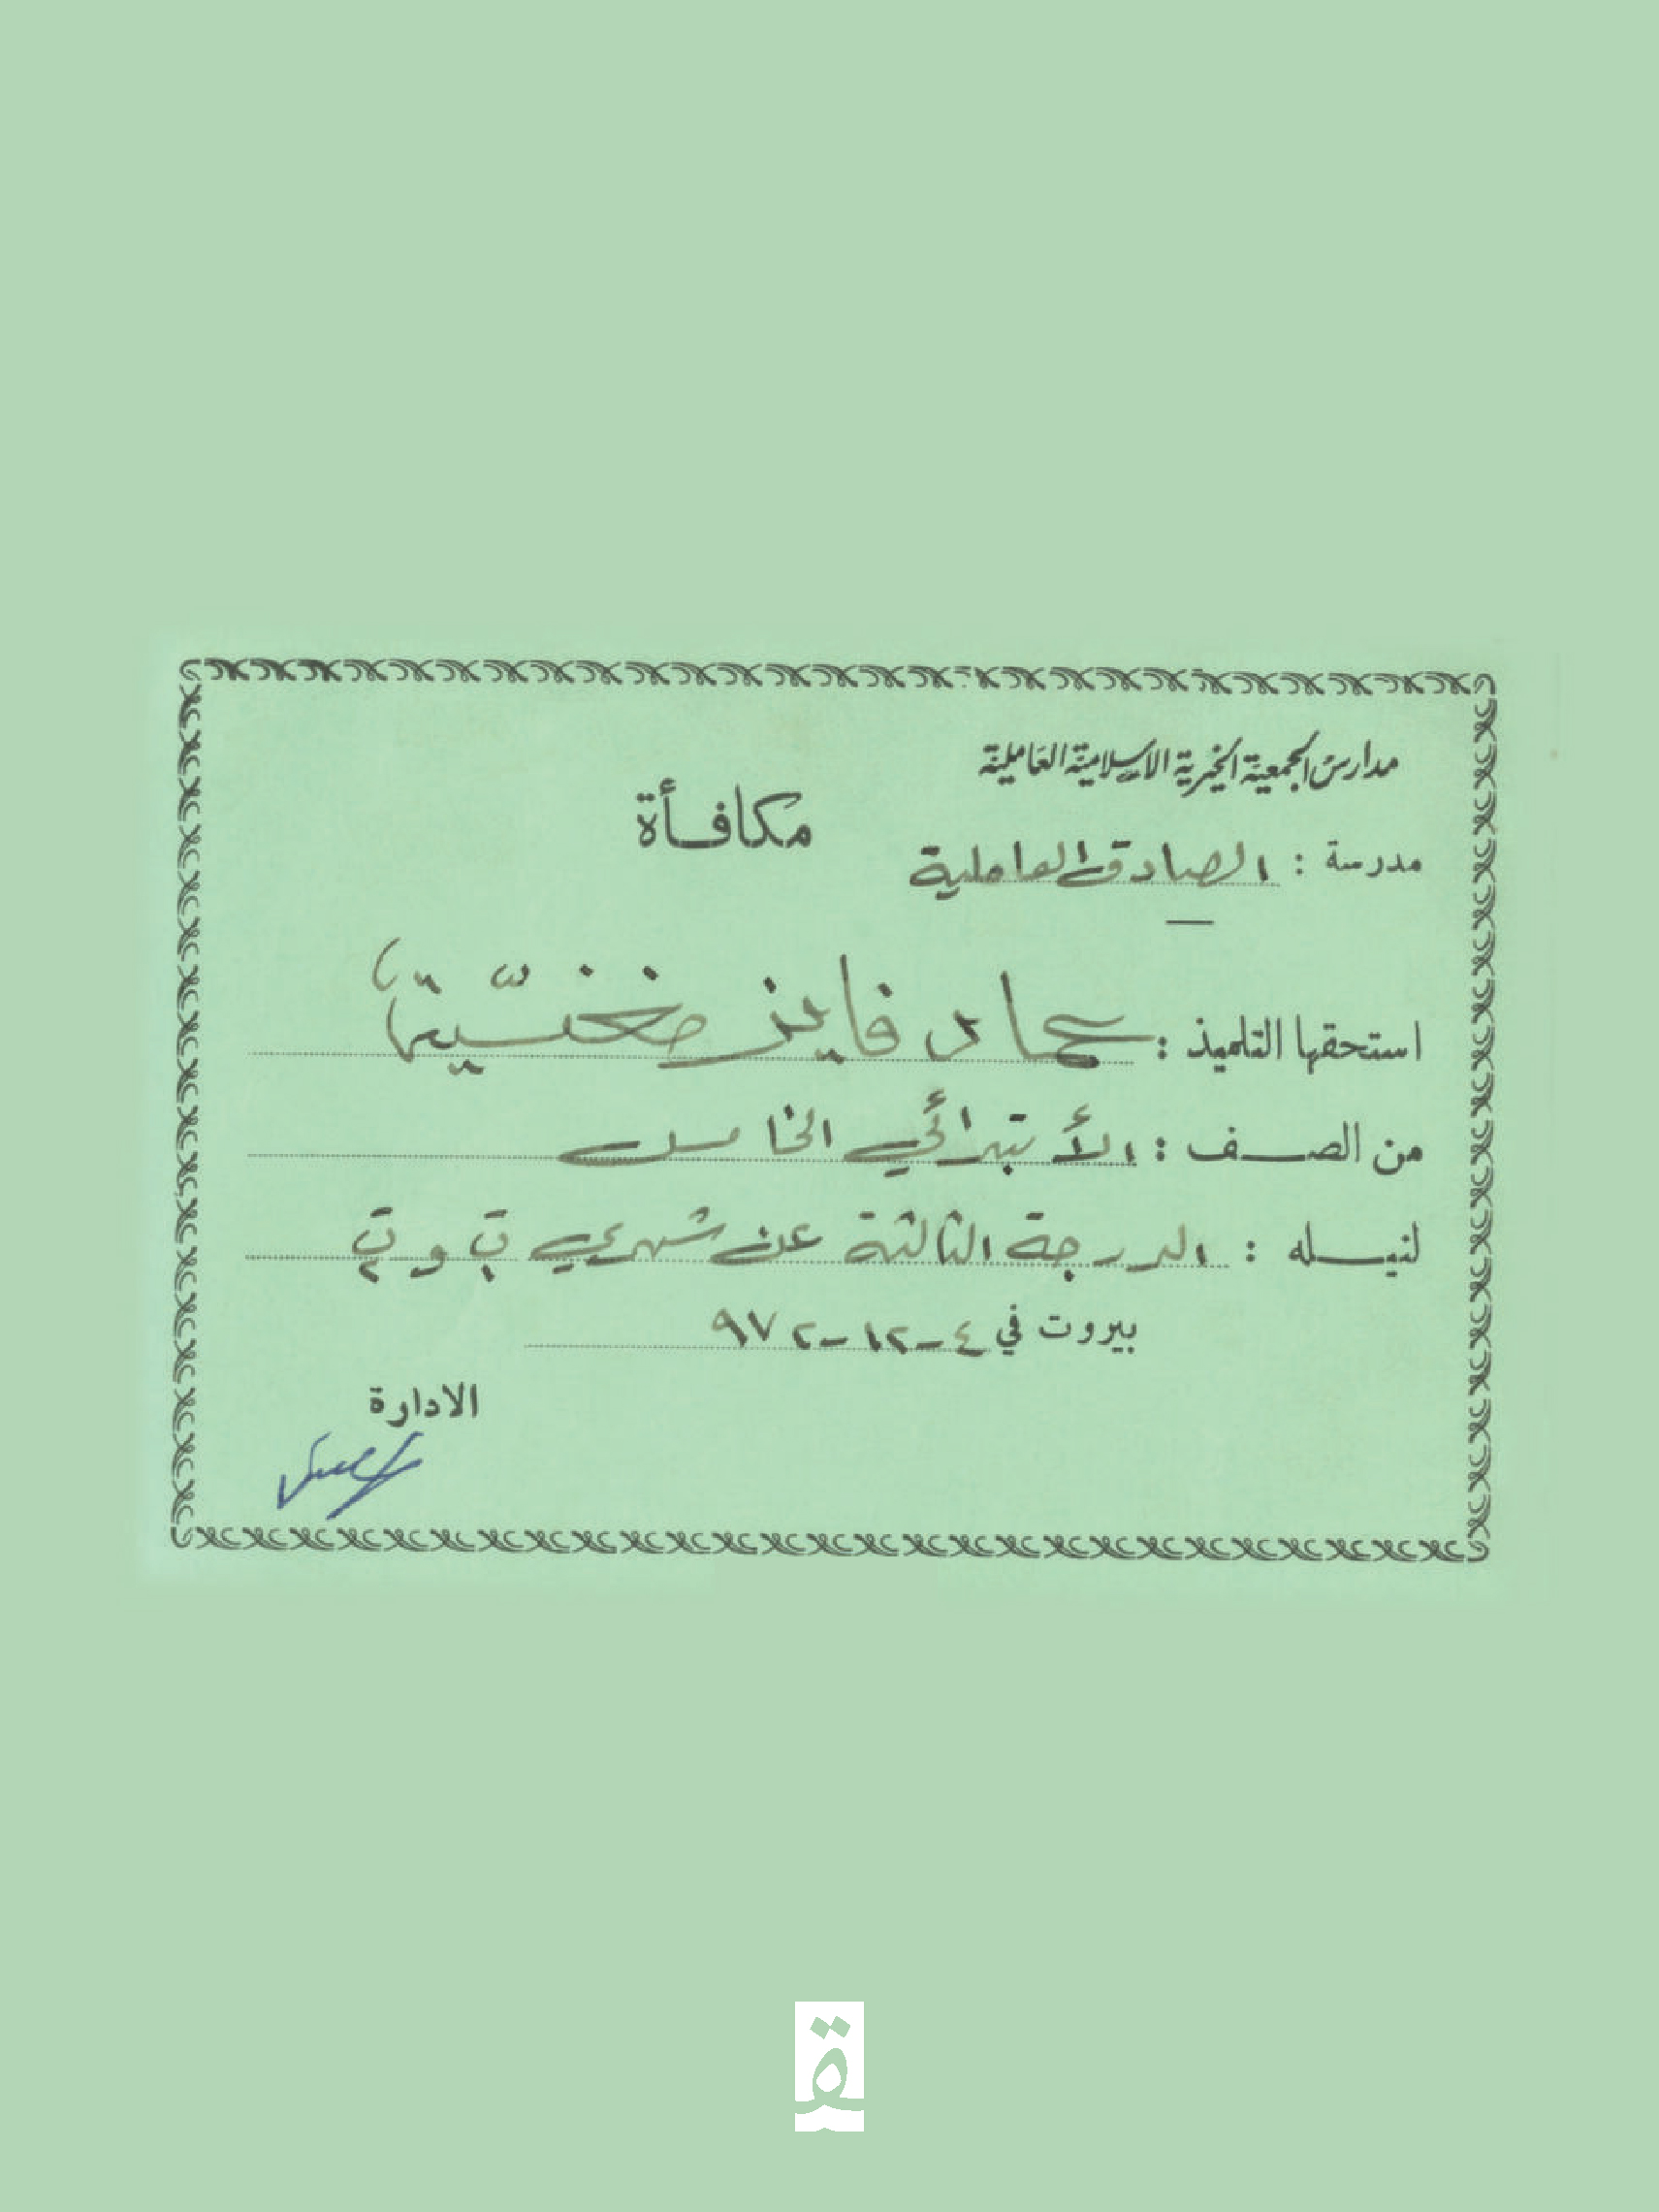 مدارس الجمعية الخيرية الاسلامية العاملية
مكافـأة
مدرسة : الصادق العاملية
استحقها التلميذ : عماد فايز مغنيّة
من الصــف : الأبتدائي الخامس
لنيـــله : الدرجة الثالثة عن شهري ت١ و ت٢
بيروت في ٤-١٢-٩٧٢
الادارة